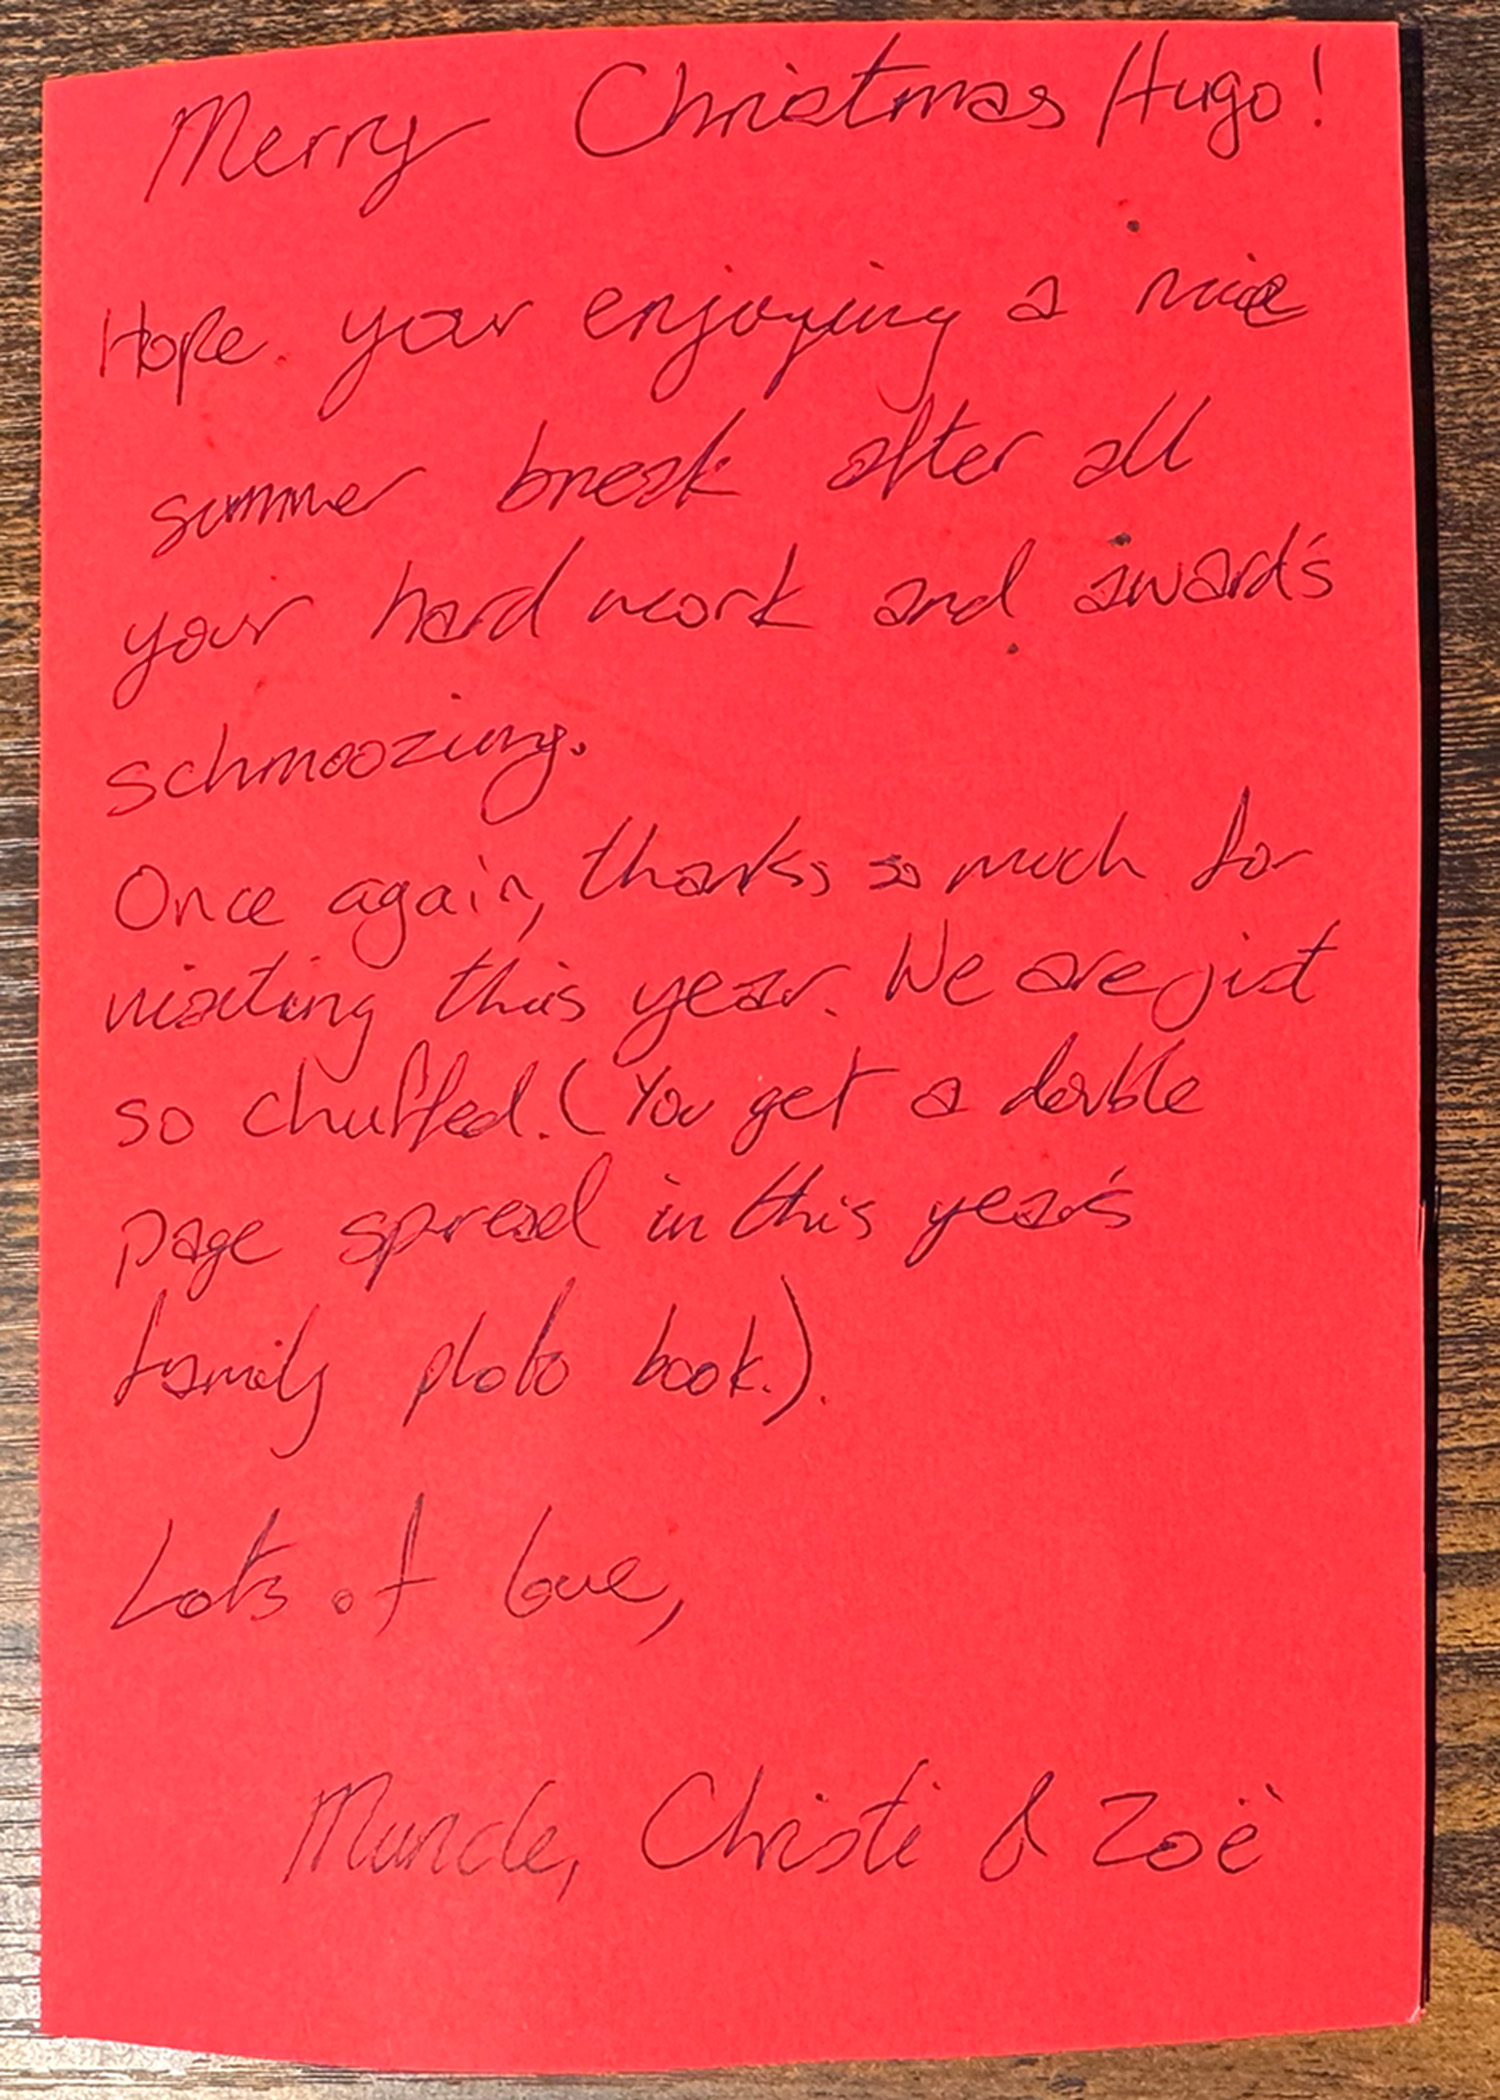 Merry Christmas Hugo!
Hope your enjoying a nice
summer break after all
your hard work and award's
schmoozing.
Once again, thanks so much for
visiting this year. We are just
so chuffed. (You get a double
page spread in this year's
family photo book.).
Lots of love,
Muncle, Christi & Zoë